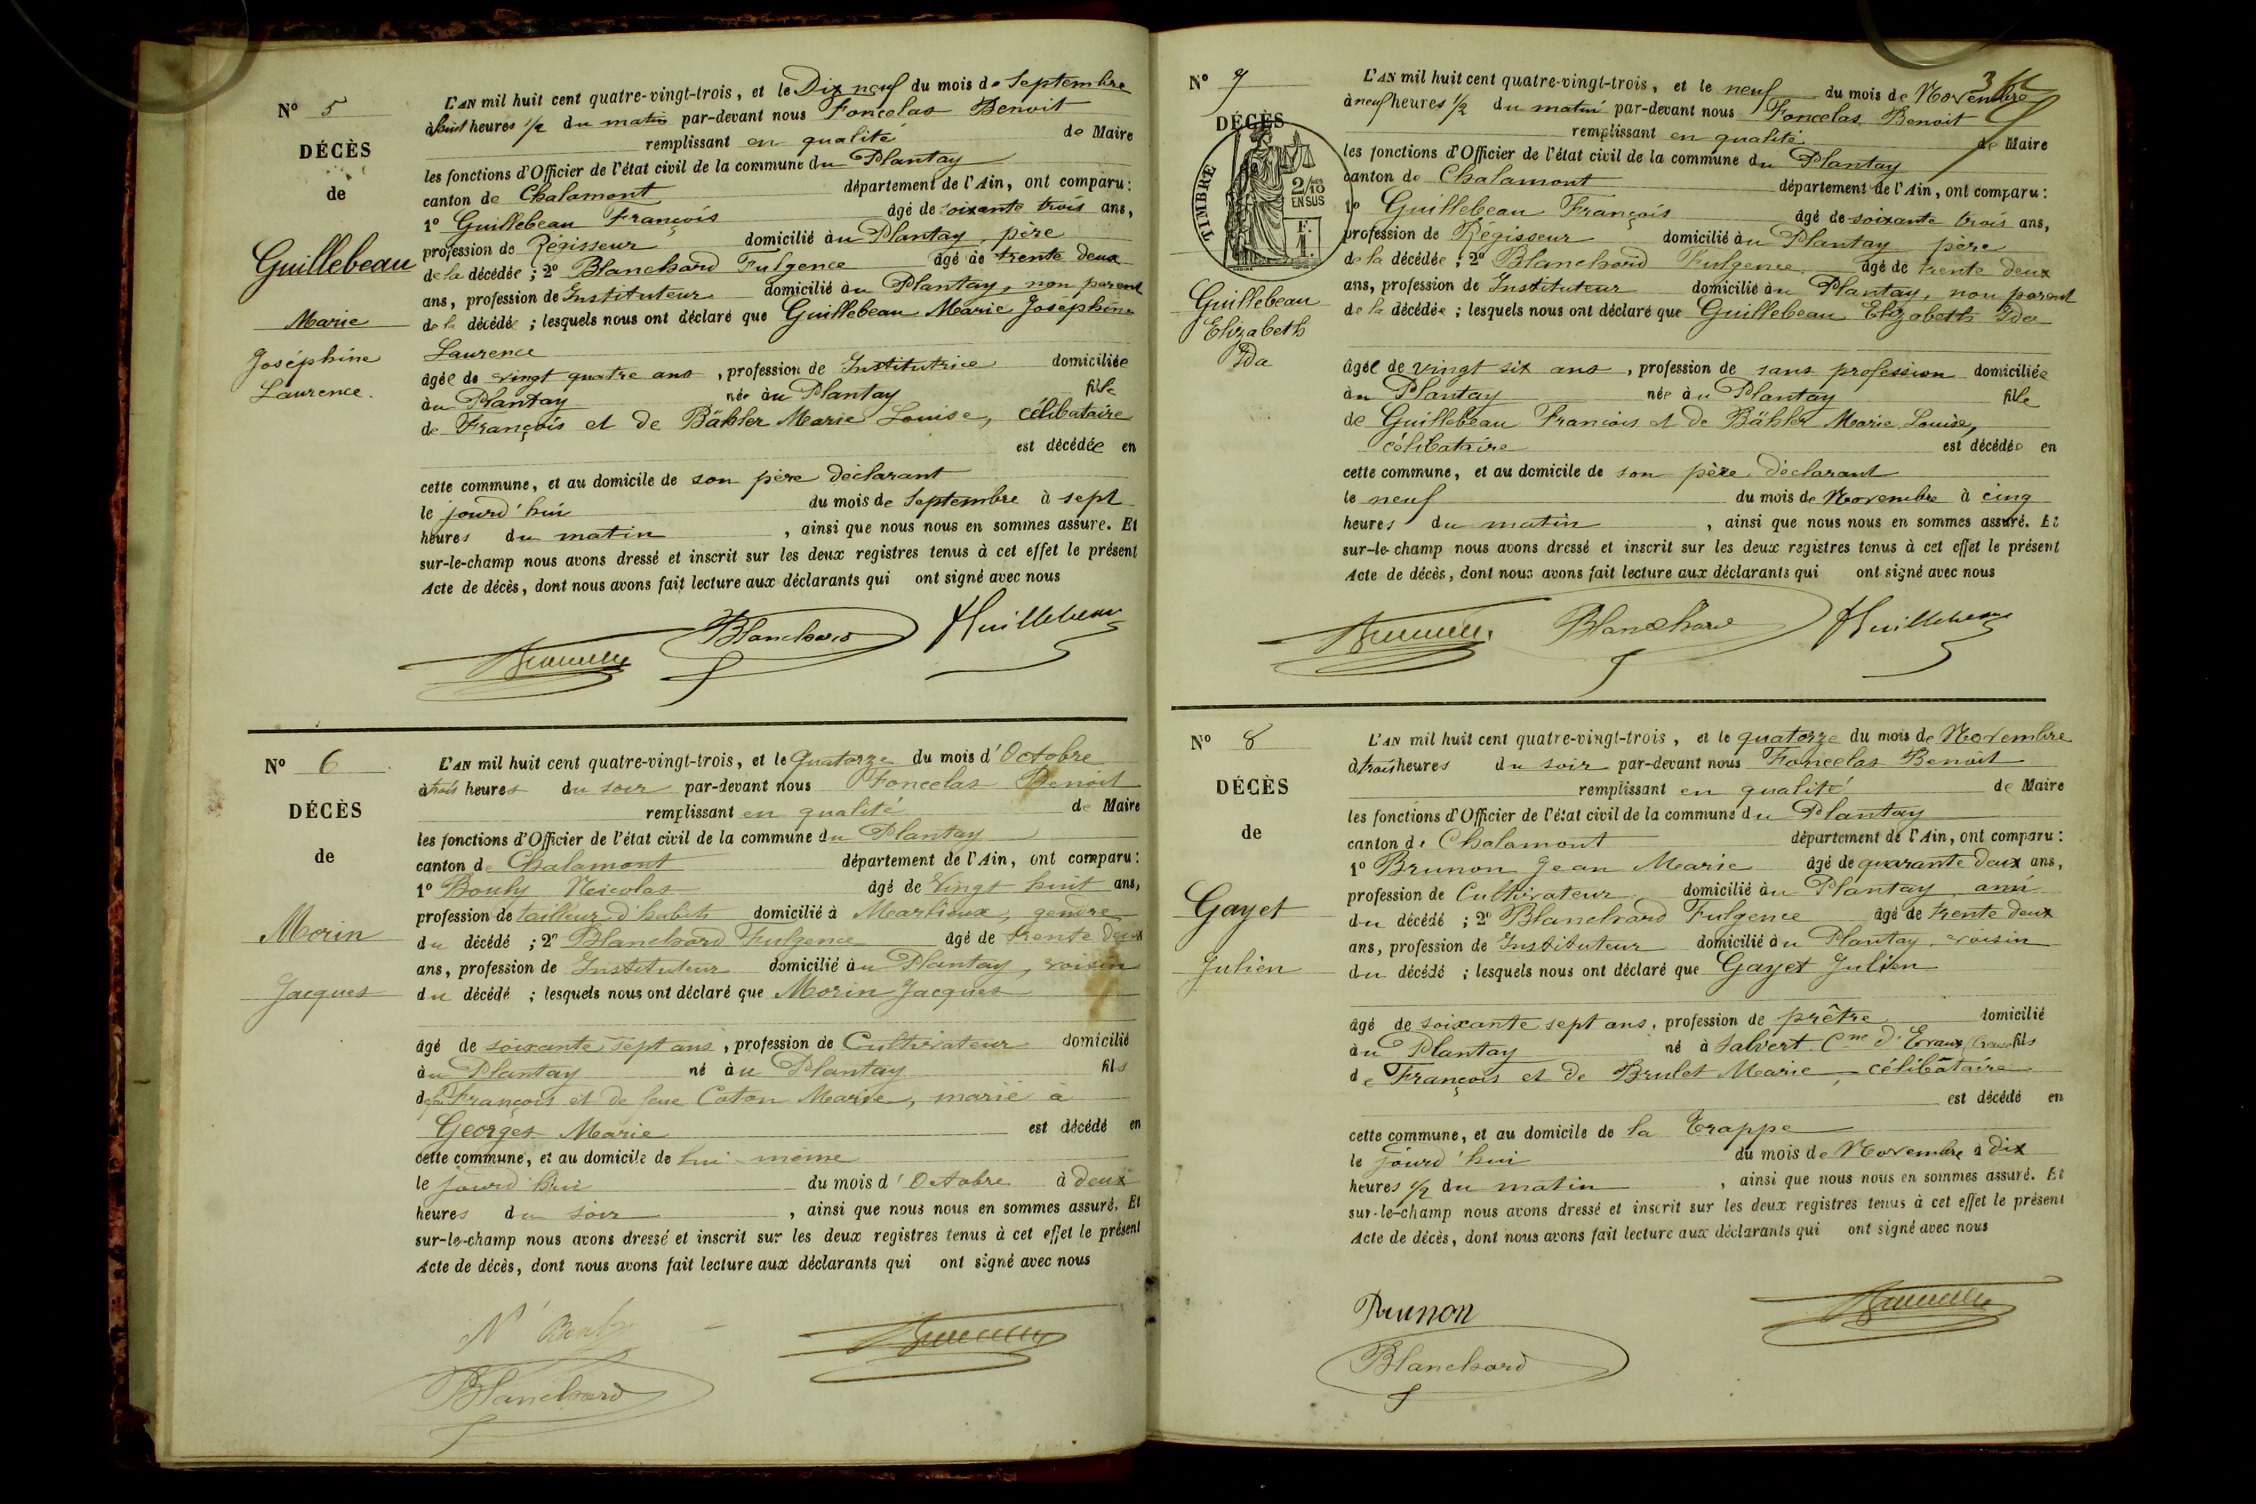 N° 5
DÉCÈS
de
Guillebeau
Marie
Joséphine
Laurence.
L'AN mil huit cent quatre-vingt-trois, et le Dix neuf du mois de Septembre
à huit heures 1/2 du matin par-devant nous Foncelas Benoit
remplissant en qualité de Maire
les fonctions d'Officier de l'état civil de la commune du Plantay
canton de Chalamont département de l'Ain, ont comparu :
1° Guillebeau François âgé de soixante trois ans,
profession de Régisseur domicilié au Plantay, père
de la décédée ; 2° Blanchard Fulgence âgé de trente deux
ans, profession de Instituteur domicilié au Plantay, non parent
de la décédée ; lesquels nous ont déclaré que Guillebeau Marie Joséphine
Laurence
âgée de vingt quatre ans, profession de Institutrice domiciliée
au Plantay née au Plantay fille
de François et de Bähler Marie Louise, célibataire
est décédée en
cette commune, et au domicile de son père déclarant
le jourd'hui du mois de Septembre à sept
heures du matin, ainsi que nous nous en sommes assuré. Et
sur-le-champ nous avons dressé et inscrit sur les deux registres tenus à cet effet le présent
Acte de décès, dont nous avons fait lecture aux déclarants qui ont signé avec nous
Blanchard Guillebeau
N° 6
DÉCÈS
de
Morin
Jacques
L'AN mil huit cent quatre-vingt-trois, et le Quatorze du mois d'Octobre
à trois heures du soir par-devant nous Foncelas Benoit
remplissant en qualité de Maire
les fonctions d'Officier de l'état civil de la commune du Plantay
canton de Chalamont département de l'Ain, ont comparu :
1° Bouhy Nicolas âgé de Vingt huit ans,
profession de tailleur d'habits domicilié à Marlieux, gendre
du décédé ; 2° Blanchard Fulgence âgé de trente deux
ans, profession de Instituteur domicilié au Plantay, voisin
du décédé ; lesquels nous ont déclaré que Morin Jacques
âgé de soixante sept ans, profession de Cultivateur domicilié
au Plantay né au Plantay fils
de feu François et de feue Caton Marie, marié à
Georges Marie est décédé en
cette commune, et au domicile de lui-même
le jourd'hui du mois d'Octobre à deux
heures du soir, ainsi que nous nous en sommes assuré. Et
sur-le-champ nous avons dressé et inscrit sur les deux registres tenus à cet effet le présent
Acte de décès, dont nous avons fait lecture aux déclarants qui ont signé avec nous
Blanchard
N° 7
DÉCÈS
TIMBRE
2/10
EN SUS
F.
1
Guillebeau
Elizabeth
Ida
L'AN mil huit cent quatre-vingt-trois, et le neuf du mois de Novembre
à neuf heures 1/2 du matin par-devant nous Foncelas Benoit
remplissant en qualité de Maire
les fonctions d'Officier de l'état civil de la commune du Plantay
canton de Chalamont département de l'Ain, ont comparu :
1° Guillebeau François âgé de soixante trois ans,
profession de Régisseur domicilié au Plantay père
de la décédée ; 2° Blanchard Fulgence âgé de trente deux
ans, profession de Instituteur domicilié au Plantay, non parent
de la décédée ; lesquels nous ont déclaré que Guillebeau Elizabeth Ida
âgée de vingt six ans, profession de sans profession domiciliée
au Plantay née au Plantay fille
de Guillebeau François et de Bähler Marie Louise,
célibataire est décédée en
cette commune, et au domicile de son père déclarant
le neuf du mois de Novembre à cinq
heures du matin, ainsi que nous nous en sommes assuré. Et
sur-le-champ nous avons dressé et inscrit sur les deux registres tenus à cet effet le présent
Acte de décès, dont nous avons fait lecture aux déclarants qui ont signé avec nous
Blanchard Guillebeau
N° 8
DÉCÈS
de
Gayet
Julien
L'AN mil huit cent quatre-vingt-trois, et le quatorze du mois de Novembre
à trois heures du soir par-devant nous Foncelas Benoit
remplissant en qualité de Maire
les fonctions d'Officier de l'état civil de la commune du Plantay
canton de Chalamont département de l'Ain, ont comparu :
1° Brunon Jean Marie âgé de quarante deux ans,
profession de Cultivateur domicilié au Plantay ami
du décédé ; 2° Blanchard Fulgence âgé de trente deux
ans, profession de Instituteur domicilié au Plantay voisin
du décédé ; lesquels nous ont déclaré que Gayet Julien
âgé de soixante sept ans, profession de prêtre domicilié
au Plantay né à Salvert Cne d'Evaux (Creuse) fils
de François et de Brulet Marie, célibataire
est décédé en
cette commune, et au domicile de la Trappe
le jourd'hui du mois de Novembre à dix
heures 1/2 du matin, ainsi que nous nous en sommes assuré. Et
sur-le-champ nous avons dressé et inscrit sur les deux registres tenus à cet effet le présent
Acte de décès, dont nous avons fait lecture aux déclarants qui ont signé avec nous
Brunon
Blanchard